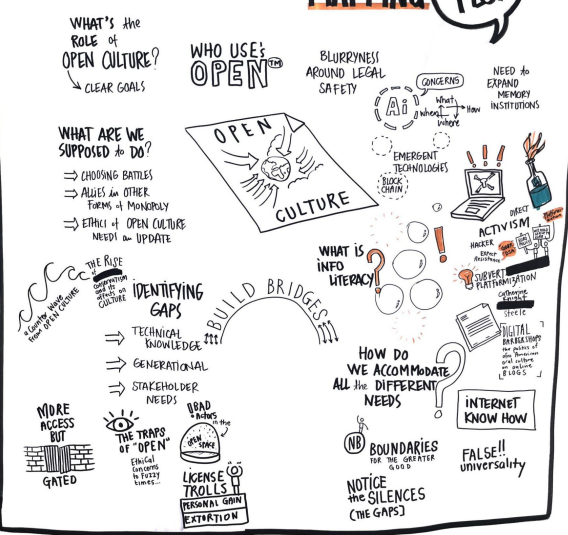 MAPPING
WHAT'S the
ROLE of
OPEN CULTURE?
CLEAR GOALS
WHO USE's
OPEN™
BLURRYNESS
AROUND LEGAL
SAFETY
Ai
CONCERNS
What
When
How
Where
NEED to
EXPAND
MEMORY
INSTITUTIONS
WHAT ARE WE
SUPPOSED to DO?
⇒ CHOOSING BATTLES
⇒ ALLIES in OTHER
FORMS of MONOPOLY
⇒ ETHICS of OPEN CULTURE
NEEDS an UPDATE
OPEN
CULTURE
EMERGENT
TECHNOLOGIES
BLOCK
CHAIN
DIRECT
ACTIVISM
HACKER
Expert
Resistance
SUBVERT
PLATFORMIZATION
Catherine
Knight
Steele
DIGITAL
BARBERSHOPS
the politics of
African American
oral culture
on online
BLOGS
a Counter Wave
from OPEN CULTURE
THE RISE
of
Conservatism
and its
effects on
CULTURE
IDENTIFYING
GAPS
⇒ TECHNICAL
KNOWLEDGE
⇒ GENERATIONAL
⇒ STAKEHOLDER
NEEDS
BUILD BRIDGES
WHAT IS
INFO
LITERACY?
HOW DO
WE ACCOMMODATE
ALL the DIFFERENT
NEEDS
INTERNET
KNOW HOW
MORE
ACCESS
BUT
GATED
THE TRAPS
OF "OPEN"
Ethical
Concerns
to Fuzzy
times...
BAD
Actors
in the
OPEN
SPACE
LICENSE
TROLLS
PERSONAL GAIN
EXTORTION
NB
BOUNDARIES
FOR THE GREATER
GOOD
NOTICE
the SILENCES
(THE GAPS]
FALSE!!
universality